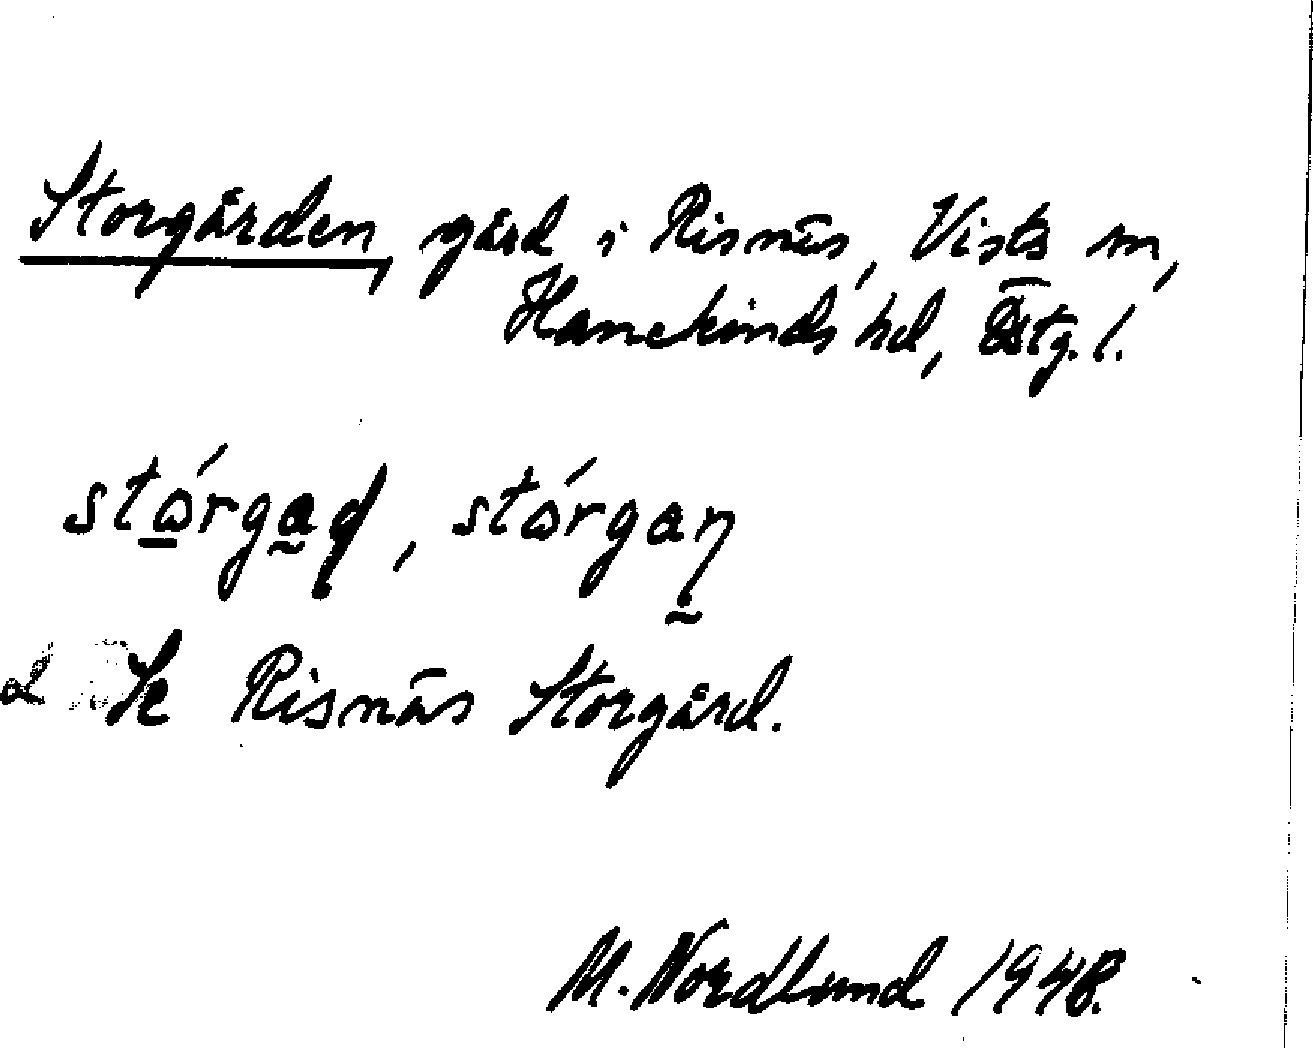 Storgården, gård i Risnäs, Vists sn,
Hanekinds hd, Östg. l.
stórgaɖ, stórgaɳ
Se Risnäs Storgård.
M. Nordlund 1948.